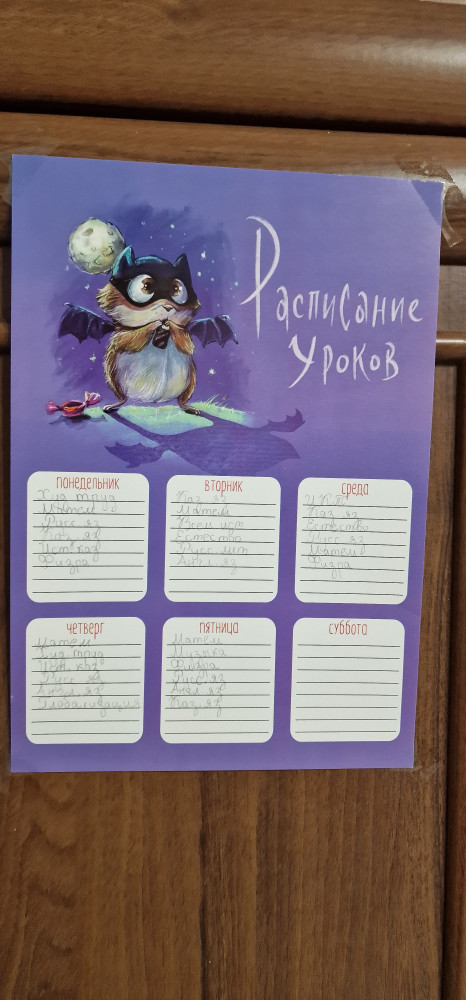 Расписание
Уроков
понедельник
Худ труд
Матем
Русс яз
Каз яз
Ист каз
Физра
вторник
Каз яз
Матем
Всем ист
Естество
Русс лит
Англ яз
среда
Каз яз
Естество
Русс яз
Матем
Физра
четверг
Матем
Худ труд
Ист каз
Русс яз
Англ яз
Глобализация
пятница
Матем
Музыка
Физра
Русс яз
Англ яз
Каз яз
суббота